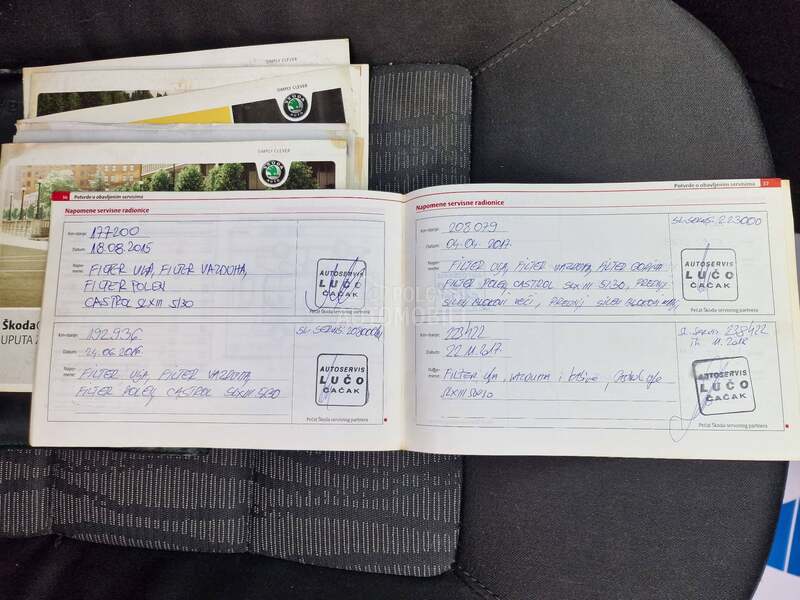 SIMPLY CLEVER
SIMPLY CLEVER
ŠKODA
AUTO
SIMPLY CLEVER
ŠKODA
AUTO
Škoda
UPUTA Z
36 Potvrde o obavljenim servisima
Napomene servisne radionice
Km-stanje: 177200
Datum: 18.08.2015
Napomene: FILTER ULJA, FILTER VAZDUHA,
FILTER POLEN
CASTROL SLX III 5/30
AUTOSERVIS
LUČO
ČAČAK
Pečat Škoda servisnog partnera
Km-stanje: 192936
Datum: 24.06.2016
SL. SERVIS. 208000
Napomene: FILTER ULJA, FILTER VAZDUHA,
FILTER POLEN, CASTROL SLX III 5/30
AUTOSERVIS
LUČO
ČAČAK
Pečat Škoda servisnog partnera
Potvrde o obavljenim servisima 37
Napomene servisne radionice
Km-stanje: 208.079
Datum: 04.04.2017
SL. SERVIS. 223000
Napomene: FILTER ULJA, FILTER VAZDUHA, FILTER GORIVA
FILTER POLEN, CASTROL SLX III 5/30, PREDNJI
SILEN BLOKOVI VEĆI, PREDNJI SILEN BLOKOVI
AUTOSERVIS
LUČO
ČAČAK
Pečat Škoda servisnog partnera
Km-stanje: 223422
Datum: 22.11.2017.
SL. SERVIS 238422
11.2018
Napomene: FILTER ulja, VAZDUHA i
SLX III 5W30
AUTOSERVIS
LUČO
ČAČAK
Pečat Škoda servisnog partnera